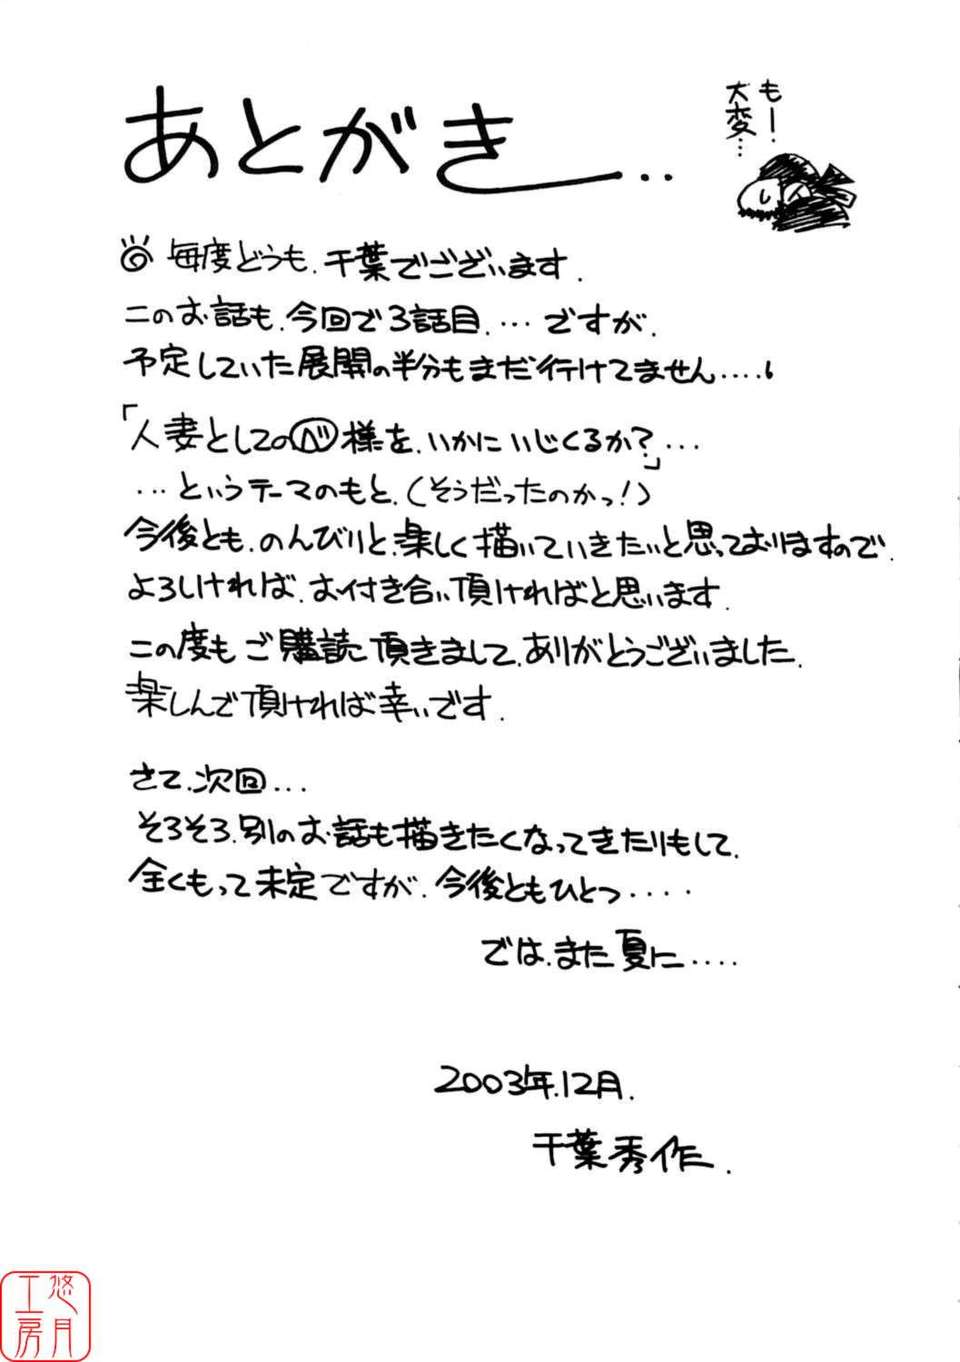 あとがき...
もー!
大変...
◎ 毎度どうも、千葉でございます.
このお話も、今回で3話目、...ですが、
予定していた展開の半分もまだ行けてません....。
「人妻としてのⓂ様を、いかにいじくるか?」...
...というテーマのもと、(そうだったのかっ!)
今後とも、のんびりと、楽しく描いていきたいと思っておりますので、
よろしければ、お付き合い頂ければと思います.
この度もご購読頂きまして、ありがとうございました.
楽しんで頂ければ幸いです.
さて、次回...
そろそろ、別のお話も描きたくなってきたりもして、
全くもって未定ですが、今後ともひとつ....
では、また夏に....
2003年.12月.
千葉秀作.
悠月工房